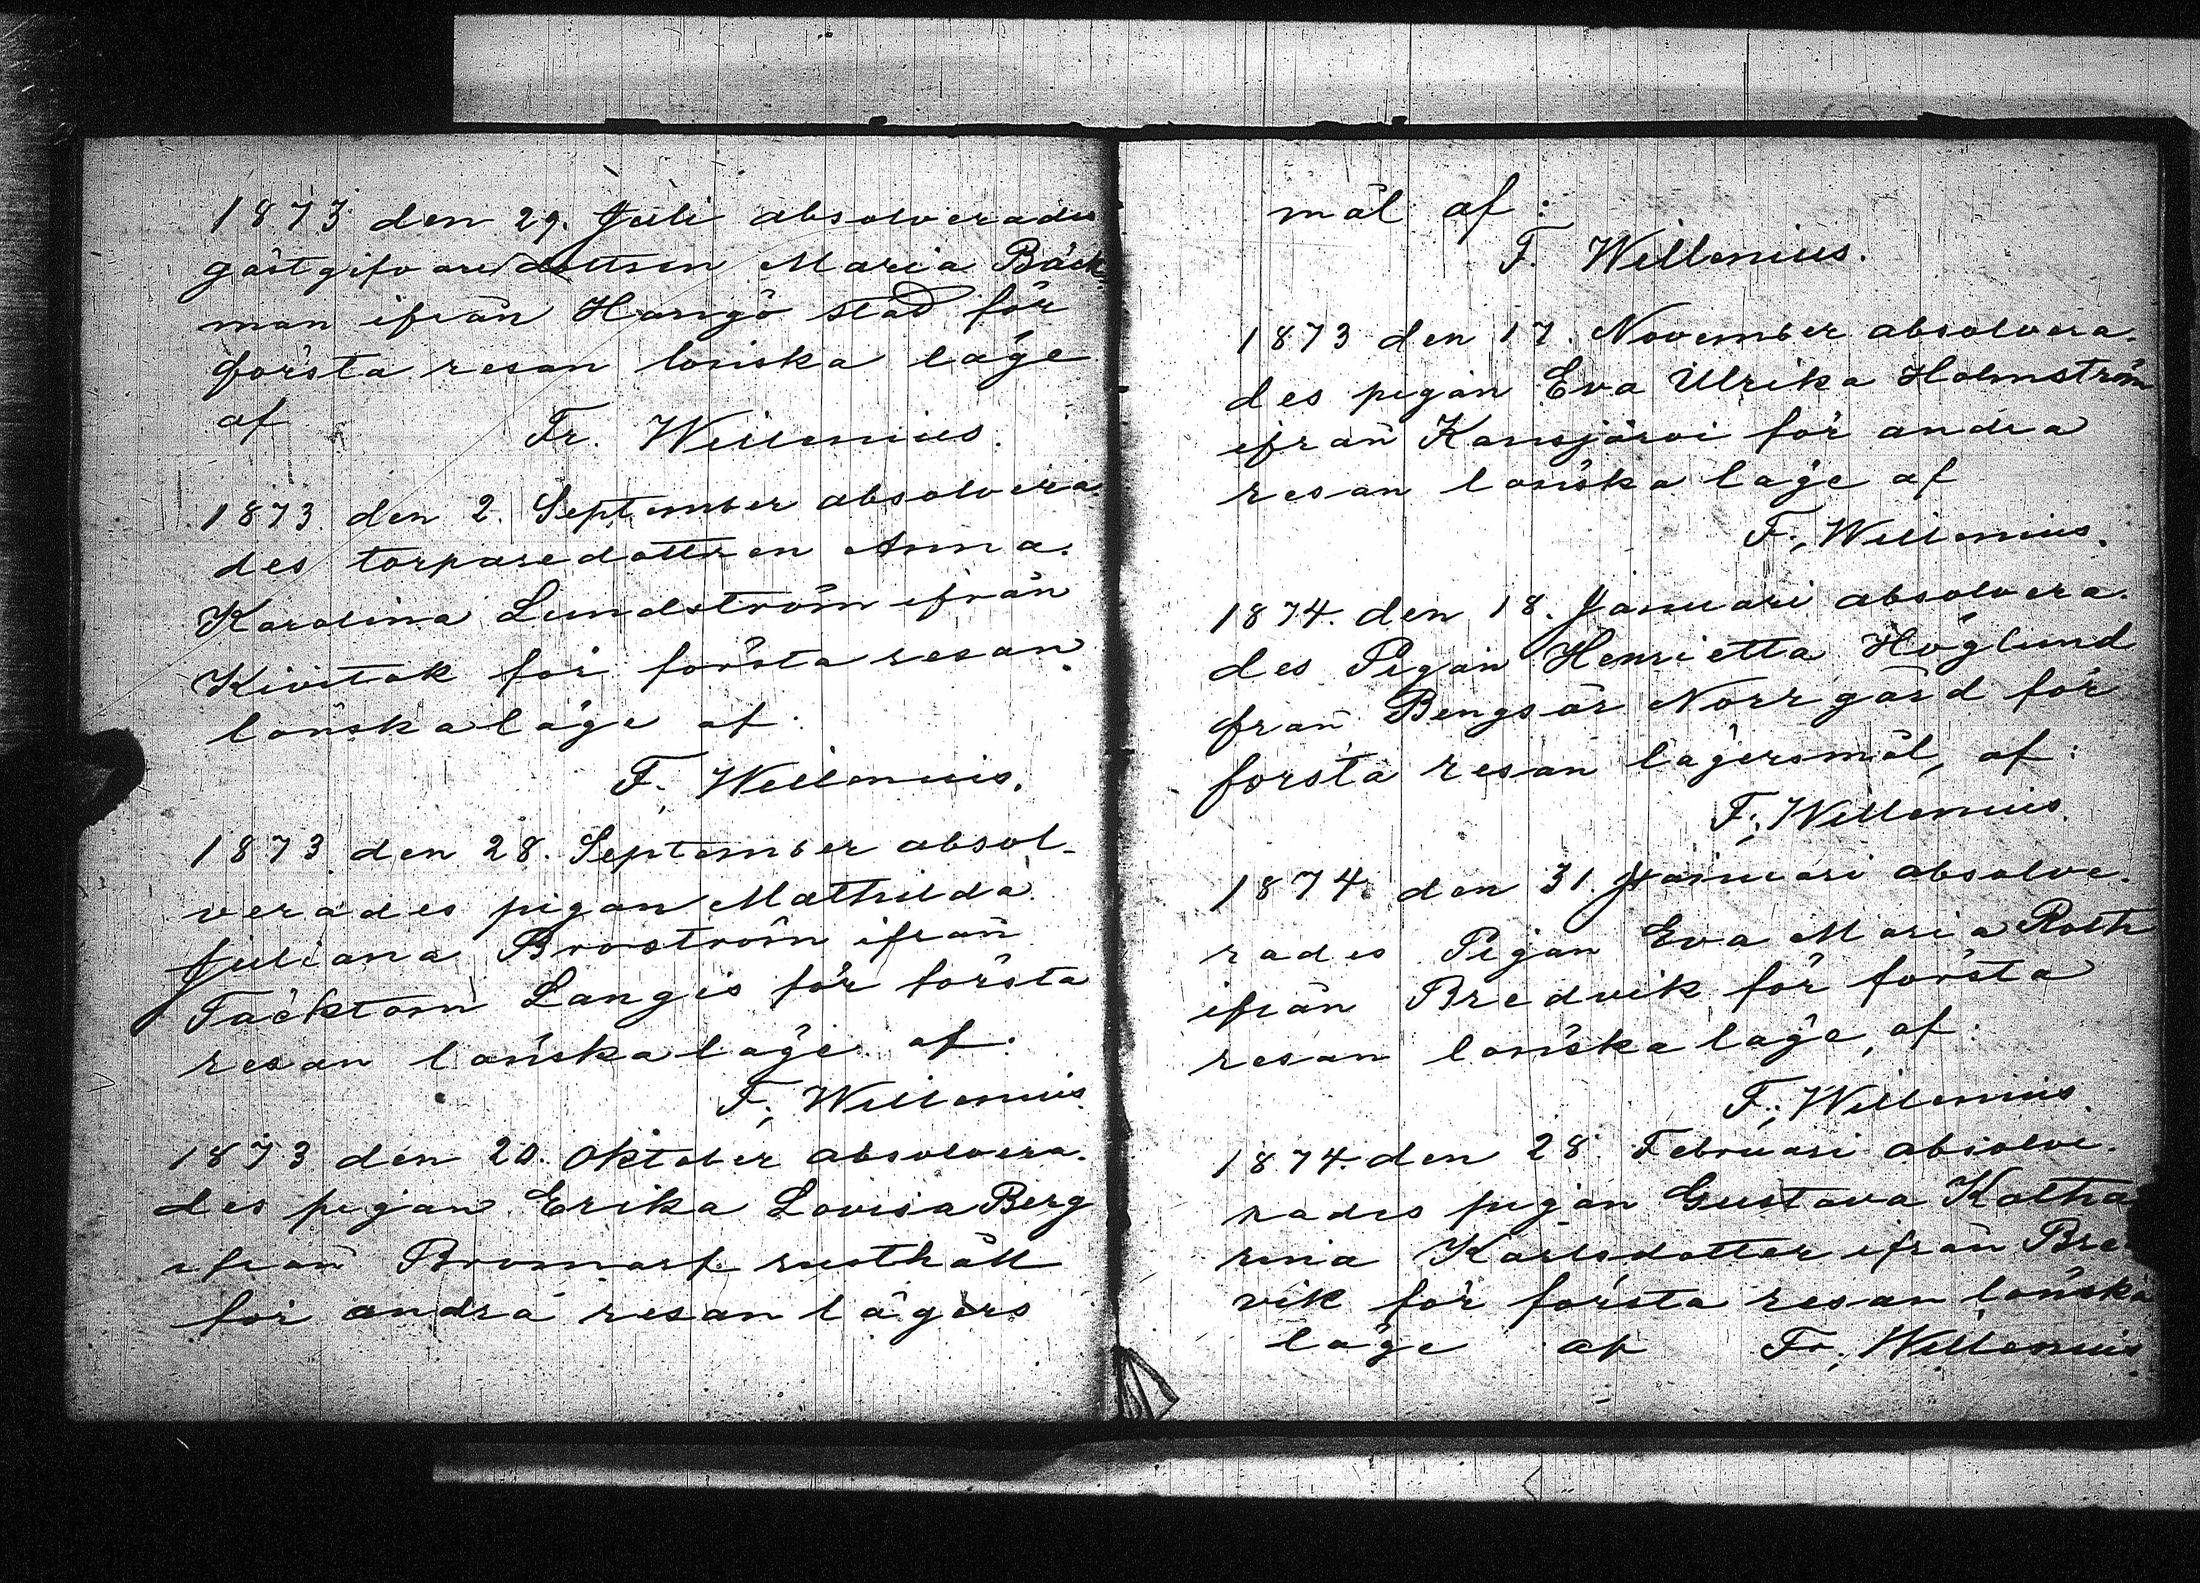 1873 den 29. Juli absolverades
gästgifvaredottren Maria Bäck
man ifrån Hangö stad för
första resan lönska läge
af Fr. Willenius.
1873 den 2. September absolvera
des torparedottren Anna
Karolina Lundström ifrån
Kivitok för första resan
lönska läge af
F. Willenius.
1873 den 28. September absol-
verades pigan Mathilda
Juliana Broström ifrån
Täcktom Langis för första
resan lönska läge af:
F. Willenius
1873 den 20. Oktober absolvera.
des pigan Erika Lovisa Berg
ifrån Bromarf rusthåll
för andra resan lägers
mål af:
F. Willenius.
1873 den 17. November absolvera.
des pigan Eva Ulrika Holmström
ifrån Kansjärvi för andra
resan lönska läge af
F. Willenius.
1874. den 18. Januari absolvera.
des Pigan Henrietta Höglund
från Bengsår Norrgård för
första resan lägersmål, af:
F. Willenius.
1874. den 31. Januari absolve.
rades Pigan Eva Maria Roth
ifrån Bredvik för första
resan lönska läge, af:
F. Willenius.
1874. den 28. Februari absolve.
rades pigan Gustava Katha
rina Karlsdotter ifrån Bre
vik för första resan lönska
läge af Fr. Willenius